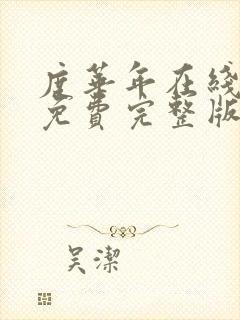 度華年在綫
免費完整版
吴潔